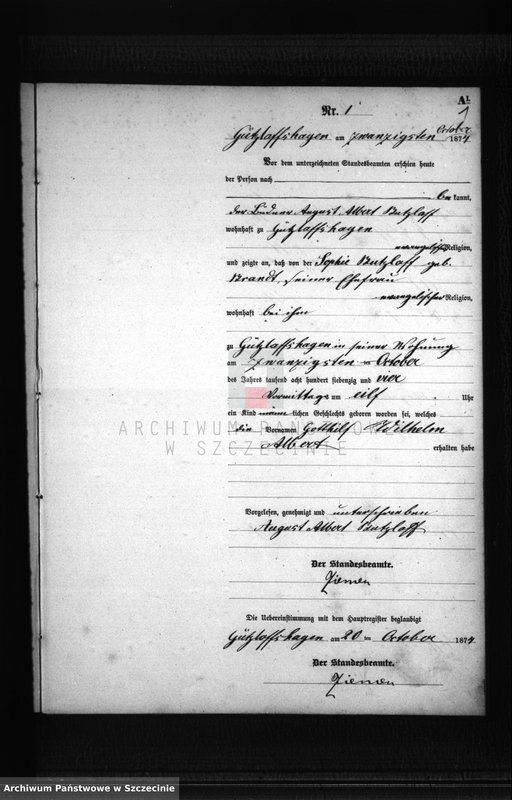 A1.
1
Nr. 1
Gützlaffshagen am zwanzigsten October 1874
Vor dem unterzeichneten Standesbeamten erschien heute
der Person nach
be kannt,
der Büdner August Albert Butzlaff
wohnhaft zu Gützlaffshagen
evangelischer Religion,
und zeigte an, daß von der Sophie Butzlaff geb.
Brandt, seiner Ehefrau
evangelischer Religion,
wohnhaft bei ihm
zu Gützlaffshagen in seiner Wohnung
am zwanzigsten ten October
des Jahres tausend acht hundert siebenzig und vier
Vormittags um eilf Uhr
ein Kind männ lichen Geschlechts geboren worden sei, welches
die Vornamen Gotthilf Wilhelm
Albert erhalten habe
ARCHIWUM PAŃSTWOWE
W SZCZECINIE
Vorgelesen, genehmigt und unterschrieben
August Albert Butzlaff
Der Standesbeamte.
Ziemen
Die Uebereinstimmung mit dem Hauptregister beglaubigt
Gützlaffshagen am 20 ten October 1874
Der Standesbeamte.
Ziemen
Archiwum Państwowe w Szczecinie